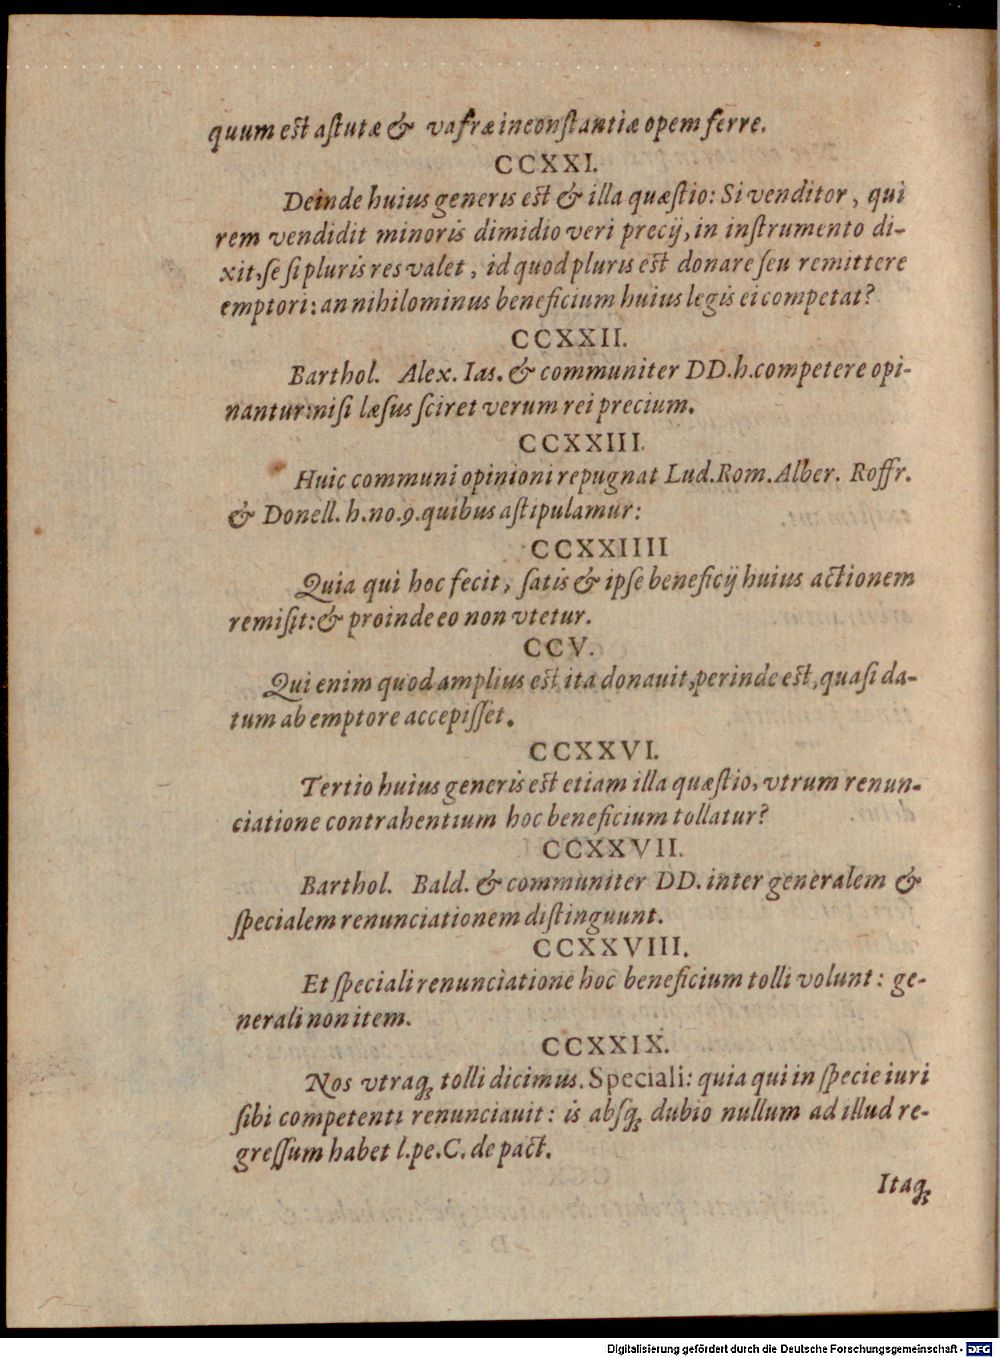 quum est astutæ & vafræ inconstantiæ opem ferre.
CCXXI.
Deinde huius generis est & illa quæstio: Si venditor, qui
rem vendidit minoris dimidio veri precij, in instrumento di-
xit, se si pluris res valet, id quod pluris est donare seu remittere
emptori: an nihilominus beneficium huius legis ei competat?
CCXXII.
Barthol. Alex. Ias. & communiter DD. h. competere opi-
nantur: nisi læsus sciret verum rei precium.
CCXXIII.
Huic communi opinioni repugnat Lud. Rom. Alber. Roffr.
& Donell. h. no. 9. quibus astipulamur:
CCXXIIII
Quia qui hoc fecit, satis & ipse beneficij huius actionem
remisit: & proinde eo non vtetur.
CCV.
Qui enim quod amplius est ita donauit, perinde est, quasi da-
tum ab emptore accepisset.
CCXXVI.
Tertio huius generis est etiam illa quæstio, vtrum renun-
ciatione contrahentium hoc beneficium tollatur?
CCXXVII.
Barthol. Bald. & communiter DD. inter generalem &
specialem renunciationem distinguunt.
CCXXVIII.
Et speciali renunciatione hoc beneficium tolli volunt: ge-
nerali non item.
CCXXIX.
Nos vtraq; tolli dicimus. Speciali: quia qui in specie iuri
sibi competenti renunciauit: is absq; dubio nullum ad illud re-
gressum habet l. pe. C. de pact.
Itaq;
Digitalisierung gefördert durch die Deutsche Forschungsgemeinschaft - DFG